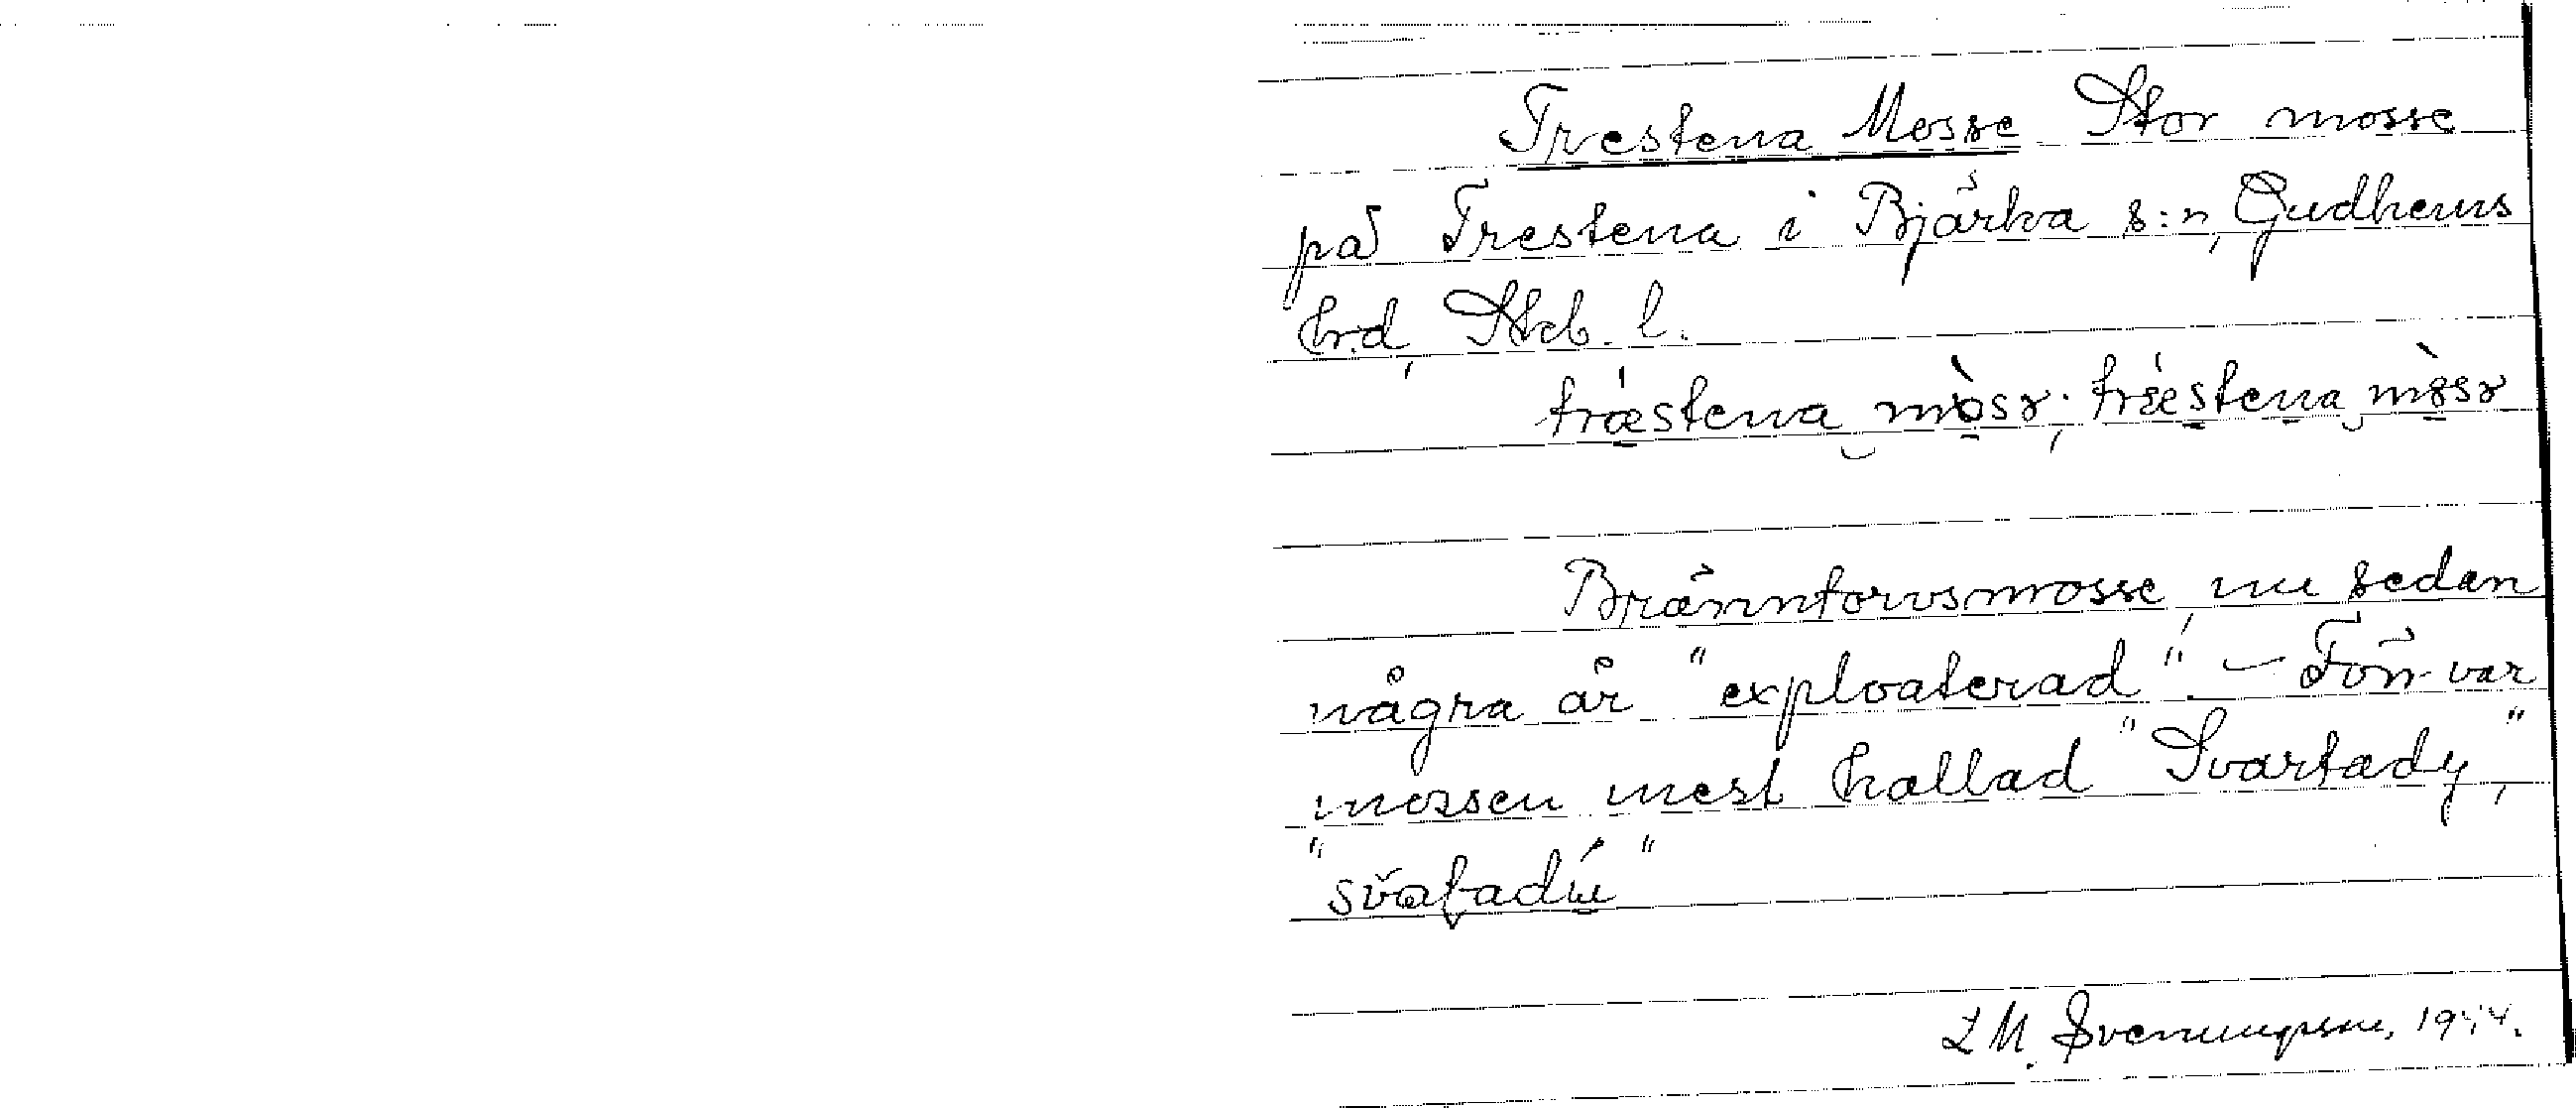 Trestena Mosse Stor mosse
på Trestena i Bjärka s:n, Gudhems
hrd, Skb. l.
træstena mòsɤ; træstena mòsɤ
Bränntorvsmosse, nu sedan
några år "exploaterad". – Förr var
mossen mest kallad "Svartady",
"svatadý"
L M. Svenungsson,